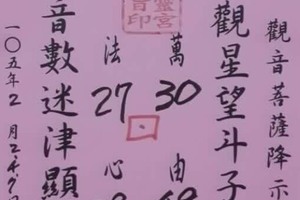 觀音菩薩降示
觀星望斗子
萬
30
由
法
27
心
音數迷津顯
一〇五年2月